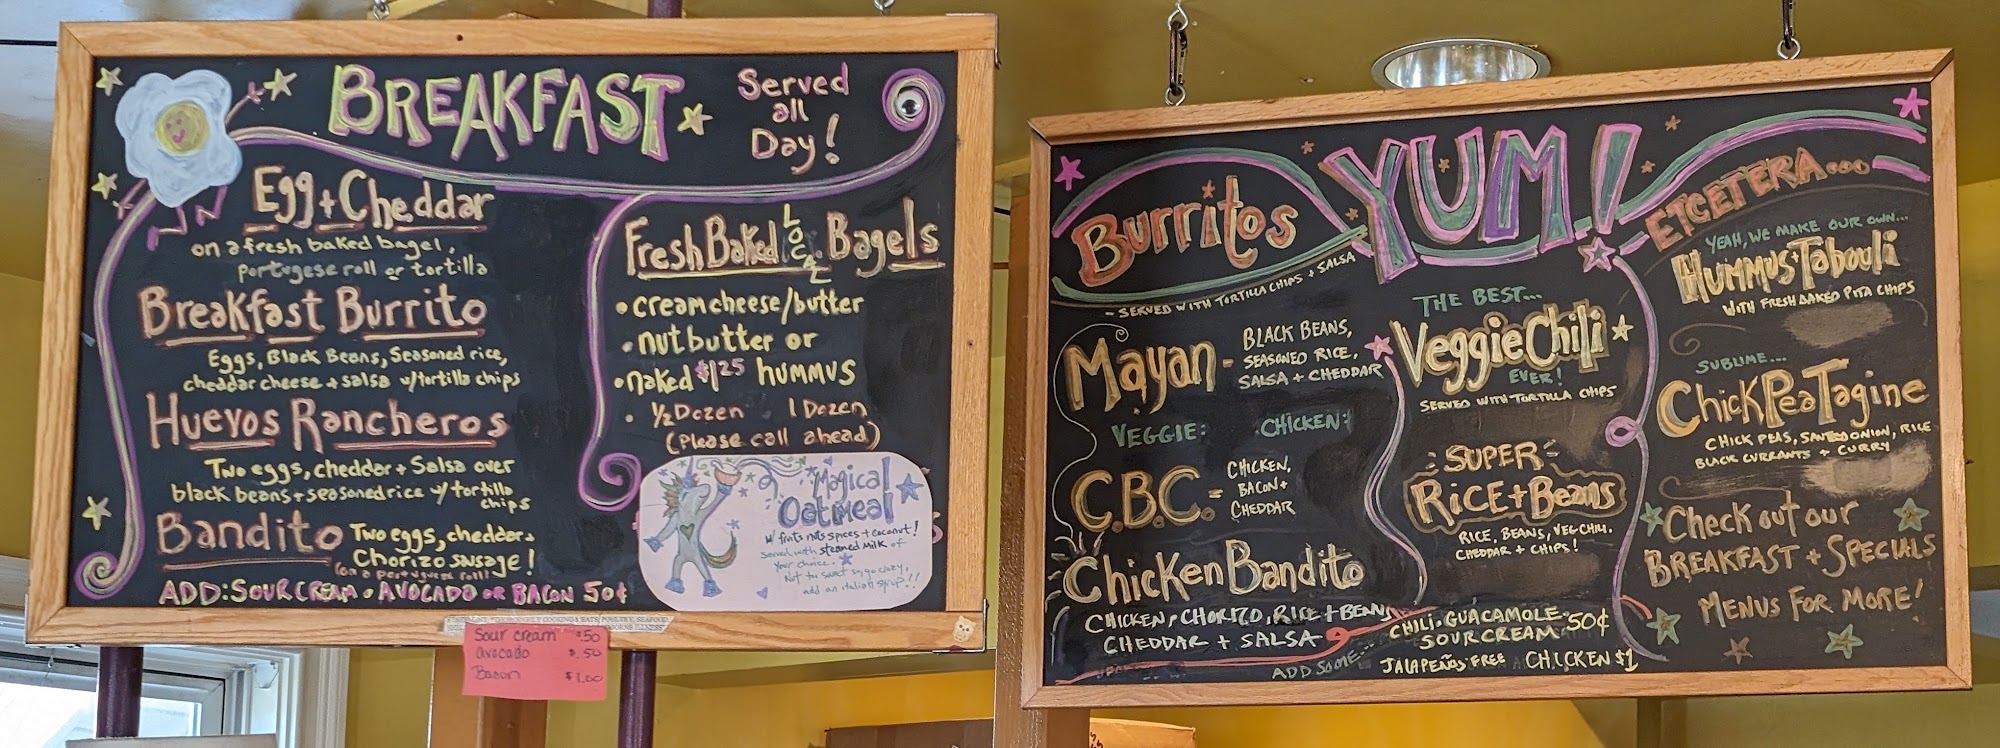 BREAKFAST
Served
all
Day!
Egg + Cheddar
on a fresh baked bagel,
portugese roll or tortilla
Breakfast Burrito
Eggs, Black Beans, Seasoned rice,
cheddar cheese + salsa w/tortilla chips
Huevos Rancheros
Two eggs, cheddar + Salsa over
black beans + seasoned rice w/ tortilla
chips
Bandito Two eggs, cheddar +
Chorizo sausage!
(on a portugese roll)
ADD: SOUR CREAM • AVOCADO OR BACON 50¢
Fresh Baked LOCAL Bagels
• cream cheese/butter
• nutbutter or
• naked $1.25 hummus
• ½ Dozen 1 Dozen
(please call ahead)
Magical
Oatmeal
w/ fruits nuts spices + coconut!
Served with steamed milk of
your choice.
Not too sweet so, go crazy,
add an italian syrup!!
Sour cream $.50
avocado $.50
Bacon $1.00
YUM!
Burritos
- SERVED WITH TORTILLA CHIPS + SALSA
Mayan - BLACK BEANS,
SEASONED RICE,
SALSA + CHEDDAR
VEGGIE: CHICKEN:
C.B.C. = CHICKEN,
BACON +
CHEDDAR
Chicken Bandito
CHICKEN, CHORIZO, RICE + BEANS
CHEDDAR + SALSA
THE BEST...
Veggie Chili
EVER!
SERVED WITH TORTILLA CHIPS
SUPER
RICE + Beans
RICE, BEANS, VEG CHILI,
CHEDDAR + CHIPS!
ADD SOME...
CHILI, GUACAMOLE 50¢
SOUR CREAM
JALAPEÑOS FREE CHICKEN $1
ETCETERA...
YEAH, WE MAKE OUR OWN...
Hummus + Tabouli
WITH FRESH BAKED PITA CHIPS
SUBLIME...
ChickPea Tagine
CHICK PEAS, SAUTEED ONION, RICE
BLACK CURRANTS + CURRY
Check out our
BREAKFAST + SPECIALS
MENUS FOR MORE!